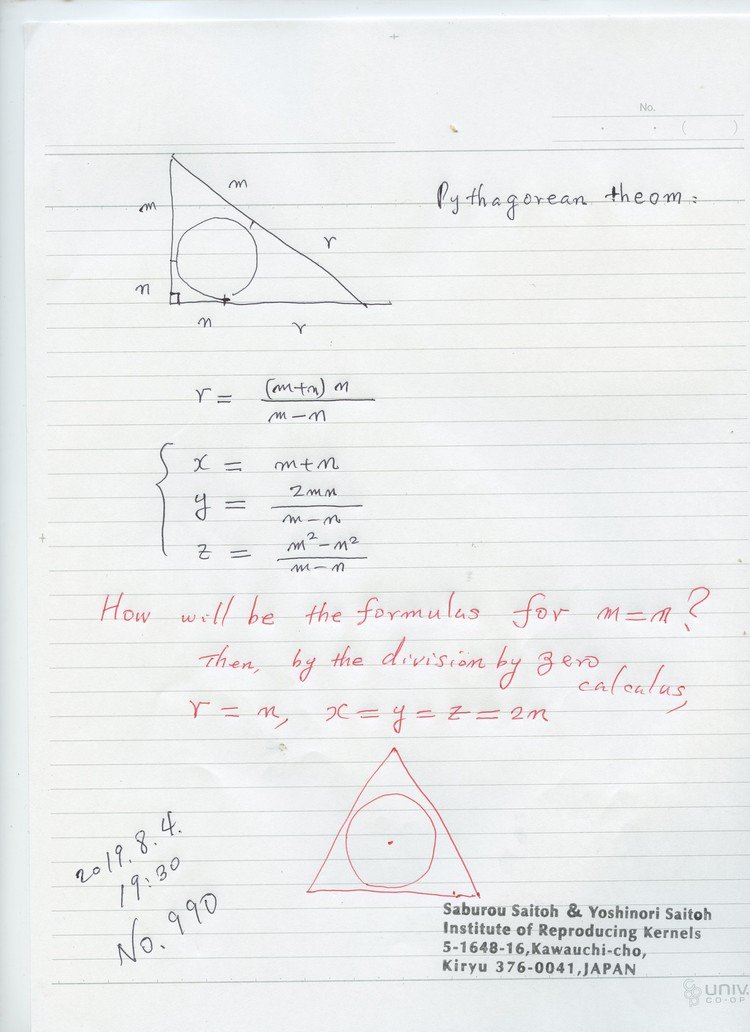 No.
( )
Pythagorean theom:
m
m
r
n
n
r
r = (m+n) n / m−n
x = m+n
y = 2mn / m−n
z = m²−n² / m−n
How will be the formulus for m=n?
Then, by the division by zero
calculus,
r = n, x = y = z = 2n
2019.8.4.
19:30
No. 990
Saburou Saitoh & Yoshinori Saitoh
Institute of Reproducing Kernels
5-1648-16,Kawauchi-cho,
Kiryu 376-0041,JAPAN
UNIV.
CO-OP